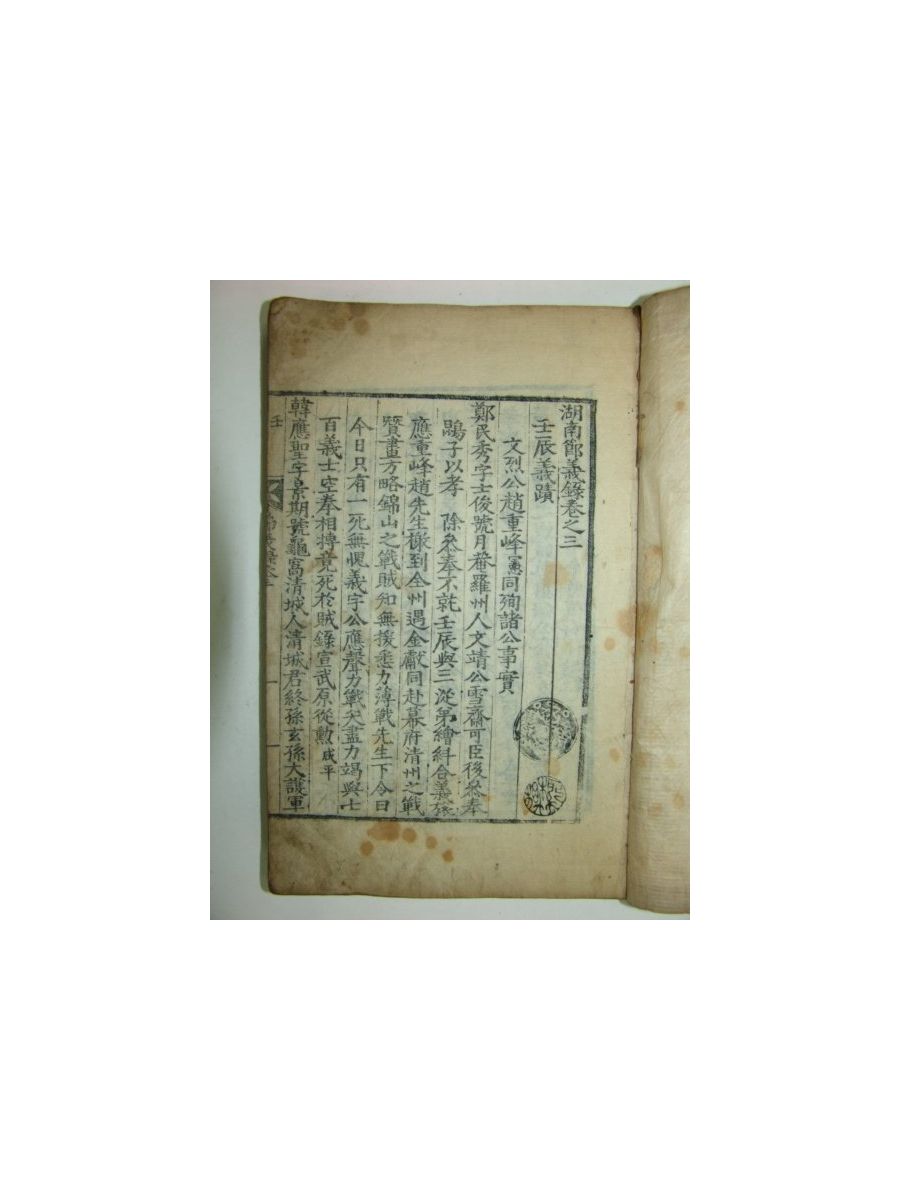 湖南節義錄卷之三
壬辰義蹟
文烈公趙重峰憲同殉諸公事實
鄭民秀字士俊號月菴羅州人文靖公雪齋可臣後叅奉
鵾子以孝 除叅奉不就壬辰與三從弟繪糾合義旅
應重峰趙先生檄到全州遇金獻同赴幕府清州之戰
贊畫方略錦山之戰賊知無援悉力薄戰先生下令曰
今日只有一死無愧義字公應聲力戰矢盡力竭與七
百義士空拳相搏竟死於賊錄宣武原從勳 咸平
韓應聖字景期號龜窩清城人清城君終孫玄孫大護軍
壬